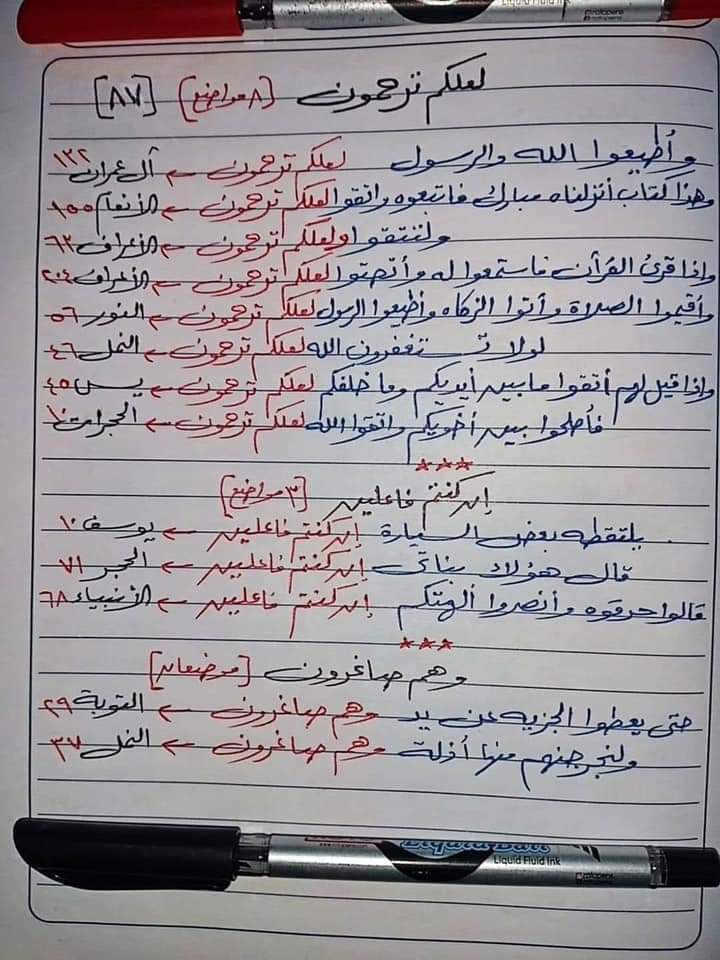 Liquid Fluid Ink
rotopens
rotopens
لعلكم ترحمون [٨ مواضع] [٨٧]
وأطيعوا الله والرسول لعلكم ترحمون ← آل عمران ١٣٢
وهذا كتاب أنزلناه مبارك فاتبعوه واتقوا لعلكم ترحمون ← الأنعام ١٥٥
ولتتقوا ولعلكم ترحمون ← الأعراف ٦٣
وإذا قرئ القرآن فاستمعوا له وأنصتوا لعلكم ترحمون ← الأعراف ٢٠٤
وأقيموا الصلاة وآتوا الزكاه وأطيعوا الرسول لعلكم ترحمون ← النور ٥٦
لولا تستغفرون الله لعلكم ترحمون ← النمل ٤٦
وإذا قيل لهم أتقوا ما بين أيديكم وما خلفكم لعلكم ترحمون ← يس ٤٥
فأصلحوا بين أخويكم واتقوا الله لعلكم ترحمون ← الحجرات ١٠
***
إن كنتم فاعلين [٣ مواضع]
يلتقطه بعض السيارة إن كنتم فاعلين ← يوسف ١٠
قال هؤلاء بناتى إن كنتم فاعلين ← الحجر ٧١
قالوا حرقوه وأنصروا ألهتكم إن كنتم فاعلين ← الأنبياء ٦٨
***
وهم صاغرون [موضعان]
حتى يعطوا الجزيه عن يد وهم صاغرون ← التوبة ٢٩
ولنخرجنهم منها أذلة وهم صاغرون ← النمل ٣٧
Liquid Ball
Liquid Fluid Ink
rotopens